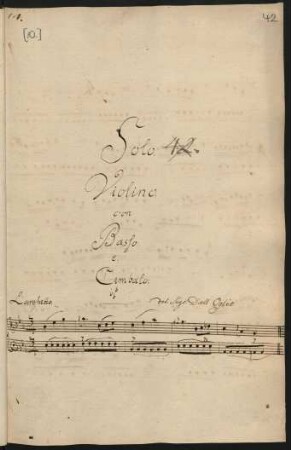 42
[10.]
Solo 42
Violino
con
Basso
e
Cembalo
Larghetto del Sigr Dall